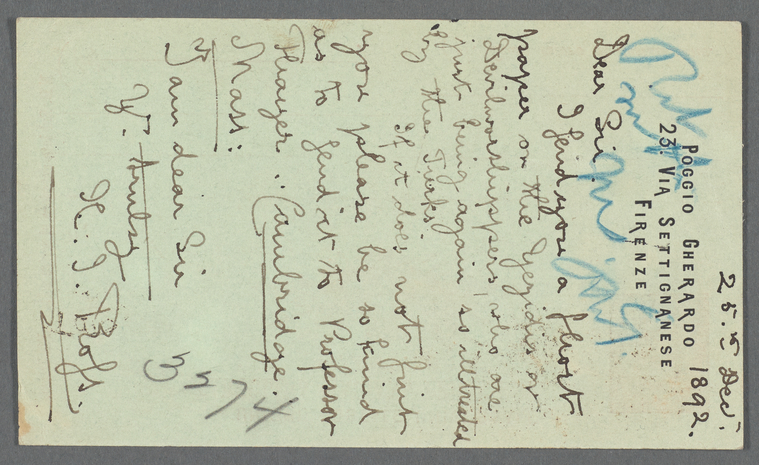 25.5 Dec: 1892.
POGGIO GHERARDO
23. VIA SETTIGNANESE
FIRENZE
Dear Sir.
I send you a short
paper on the Yezidis or
Devilworshippers, who are
just being again so illtreated
by the Turks.
If it does not suit
you please be so kind
as to send it to Professor
Thayer. Cambridge.
Mass:
I am dear Sir
Y.
3574